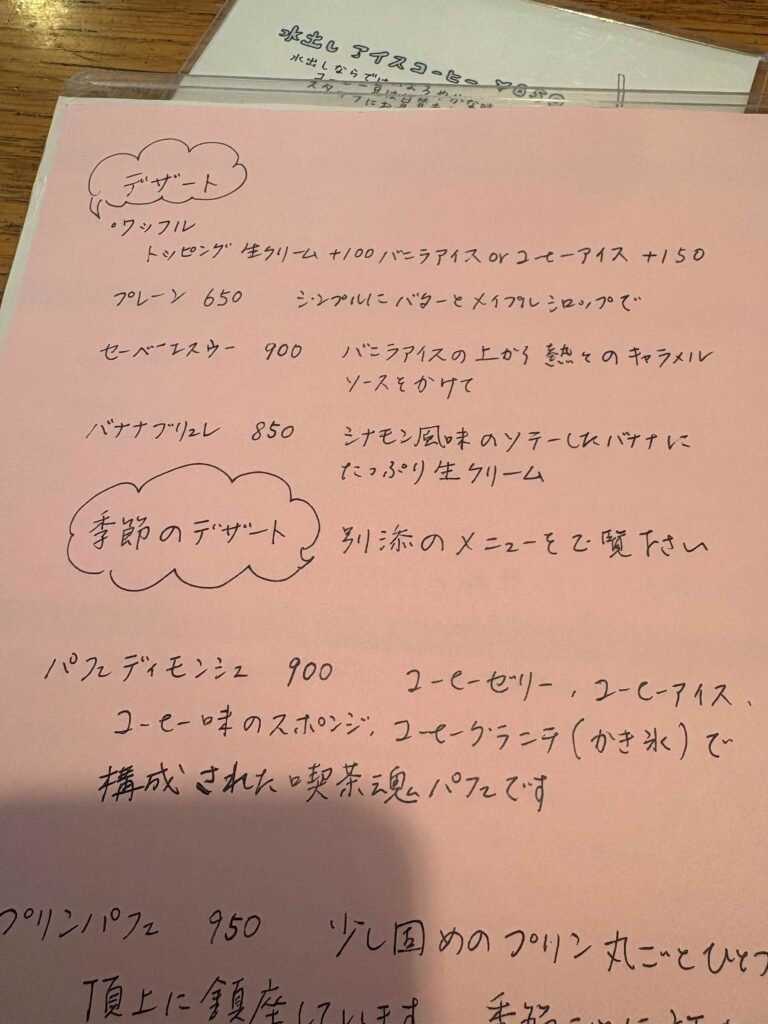 水出し アイスコーヒー ¥650
水出しならではのまろやかな味
デザート
・ワッフル
トッピング 生クリーム +100 バニラアイス or コーヒーアイス +150
プレーン 650 シンプルにバターとメイプルシロップで
セーベーエスウー 900 バニラアイスの上から熱々のキャラメル
ソースをかけて
バナナブリュレ 850 シナモン風味のソテーしたバナナに
たっぷり生クリーム
季節のデザート 別添のメニューをご覧下さい
パフェ ディモンシュ 900 コーヒーゼリー、コーヒーアイス、
コーヒー味のスポンジ、コーヒーグラニテ(かき氷)で
構成された喫茶魂パフェです
プリンパフェ 950 少し固めのプリン丸ごとひとつ
頂上に鎮座しています 季節ごとに